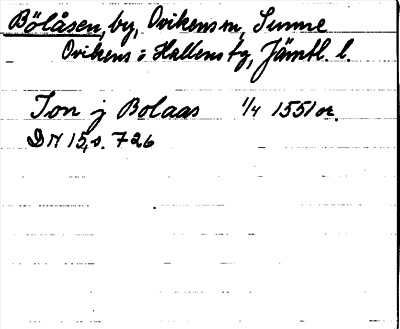 Bölåsen, by, Ovikens sn, Sunne
Ovikens o Hallens tg, Jämtl. l.
Jon j Bolaas 1/4 1551 or.
DN 15, s. 726